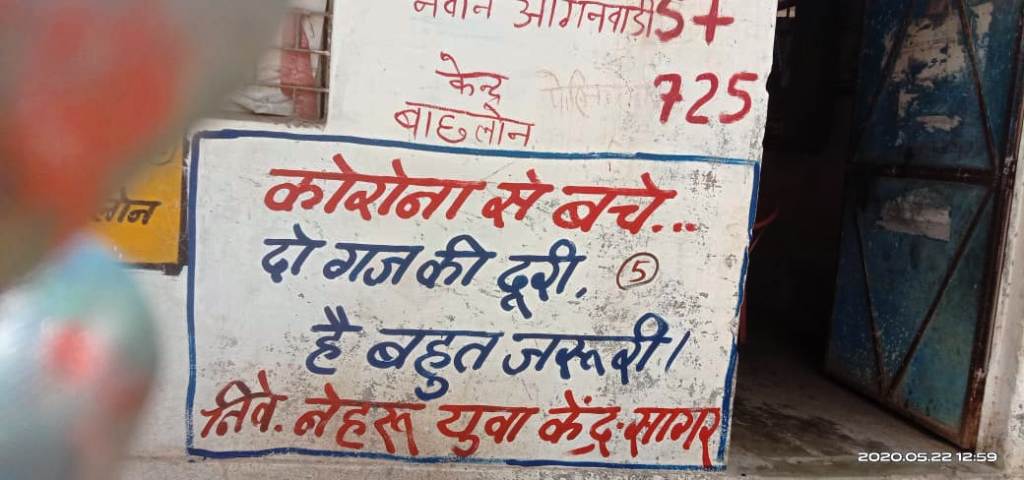 नवीन आंगनवाडी
केन्द्र
बाछलोन
5+
725
कोरोना से बचे...
दो गज की दूरी. ⑤
है बहुत जरूरी।
निवे. नेहरू युवा केंद्र-सागर
2020.05.22 12:59